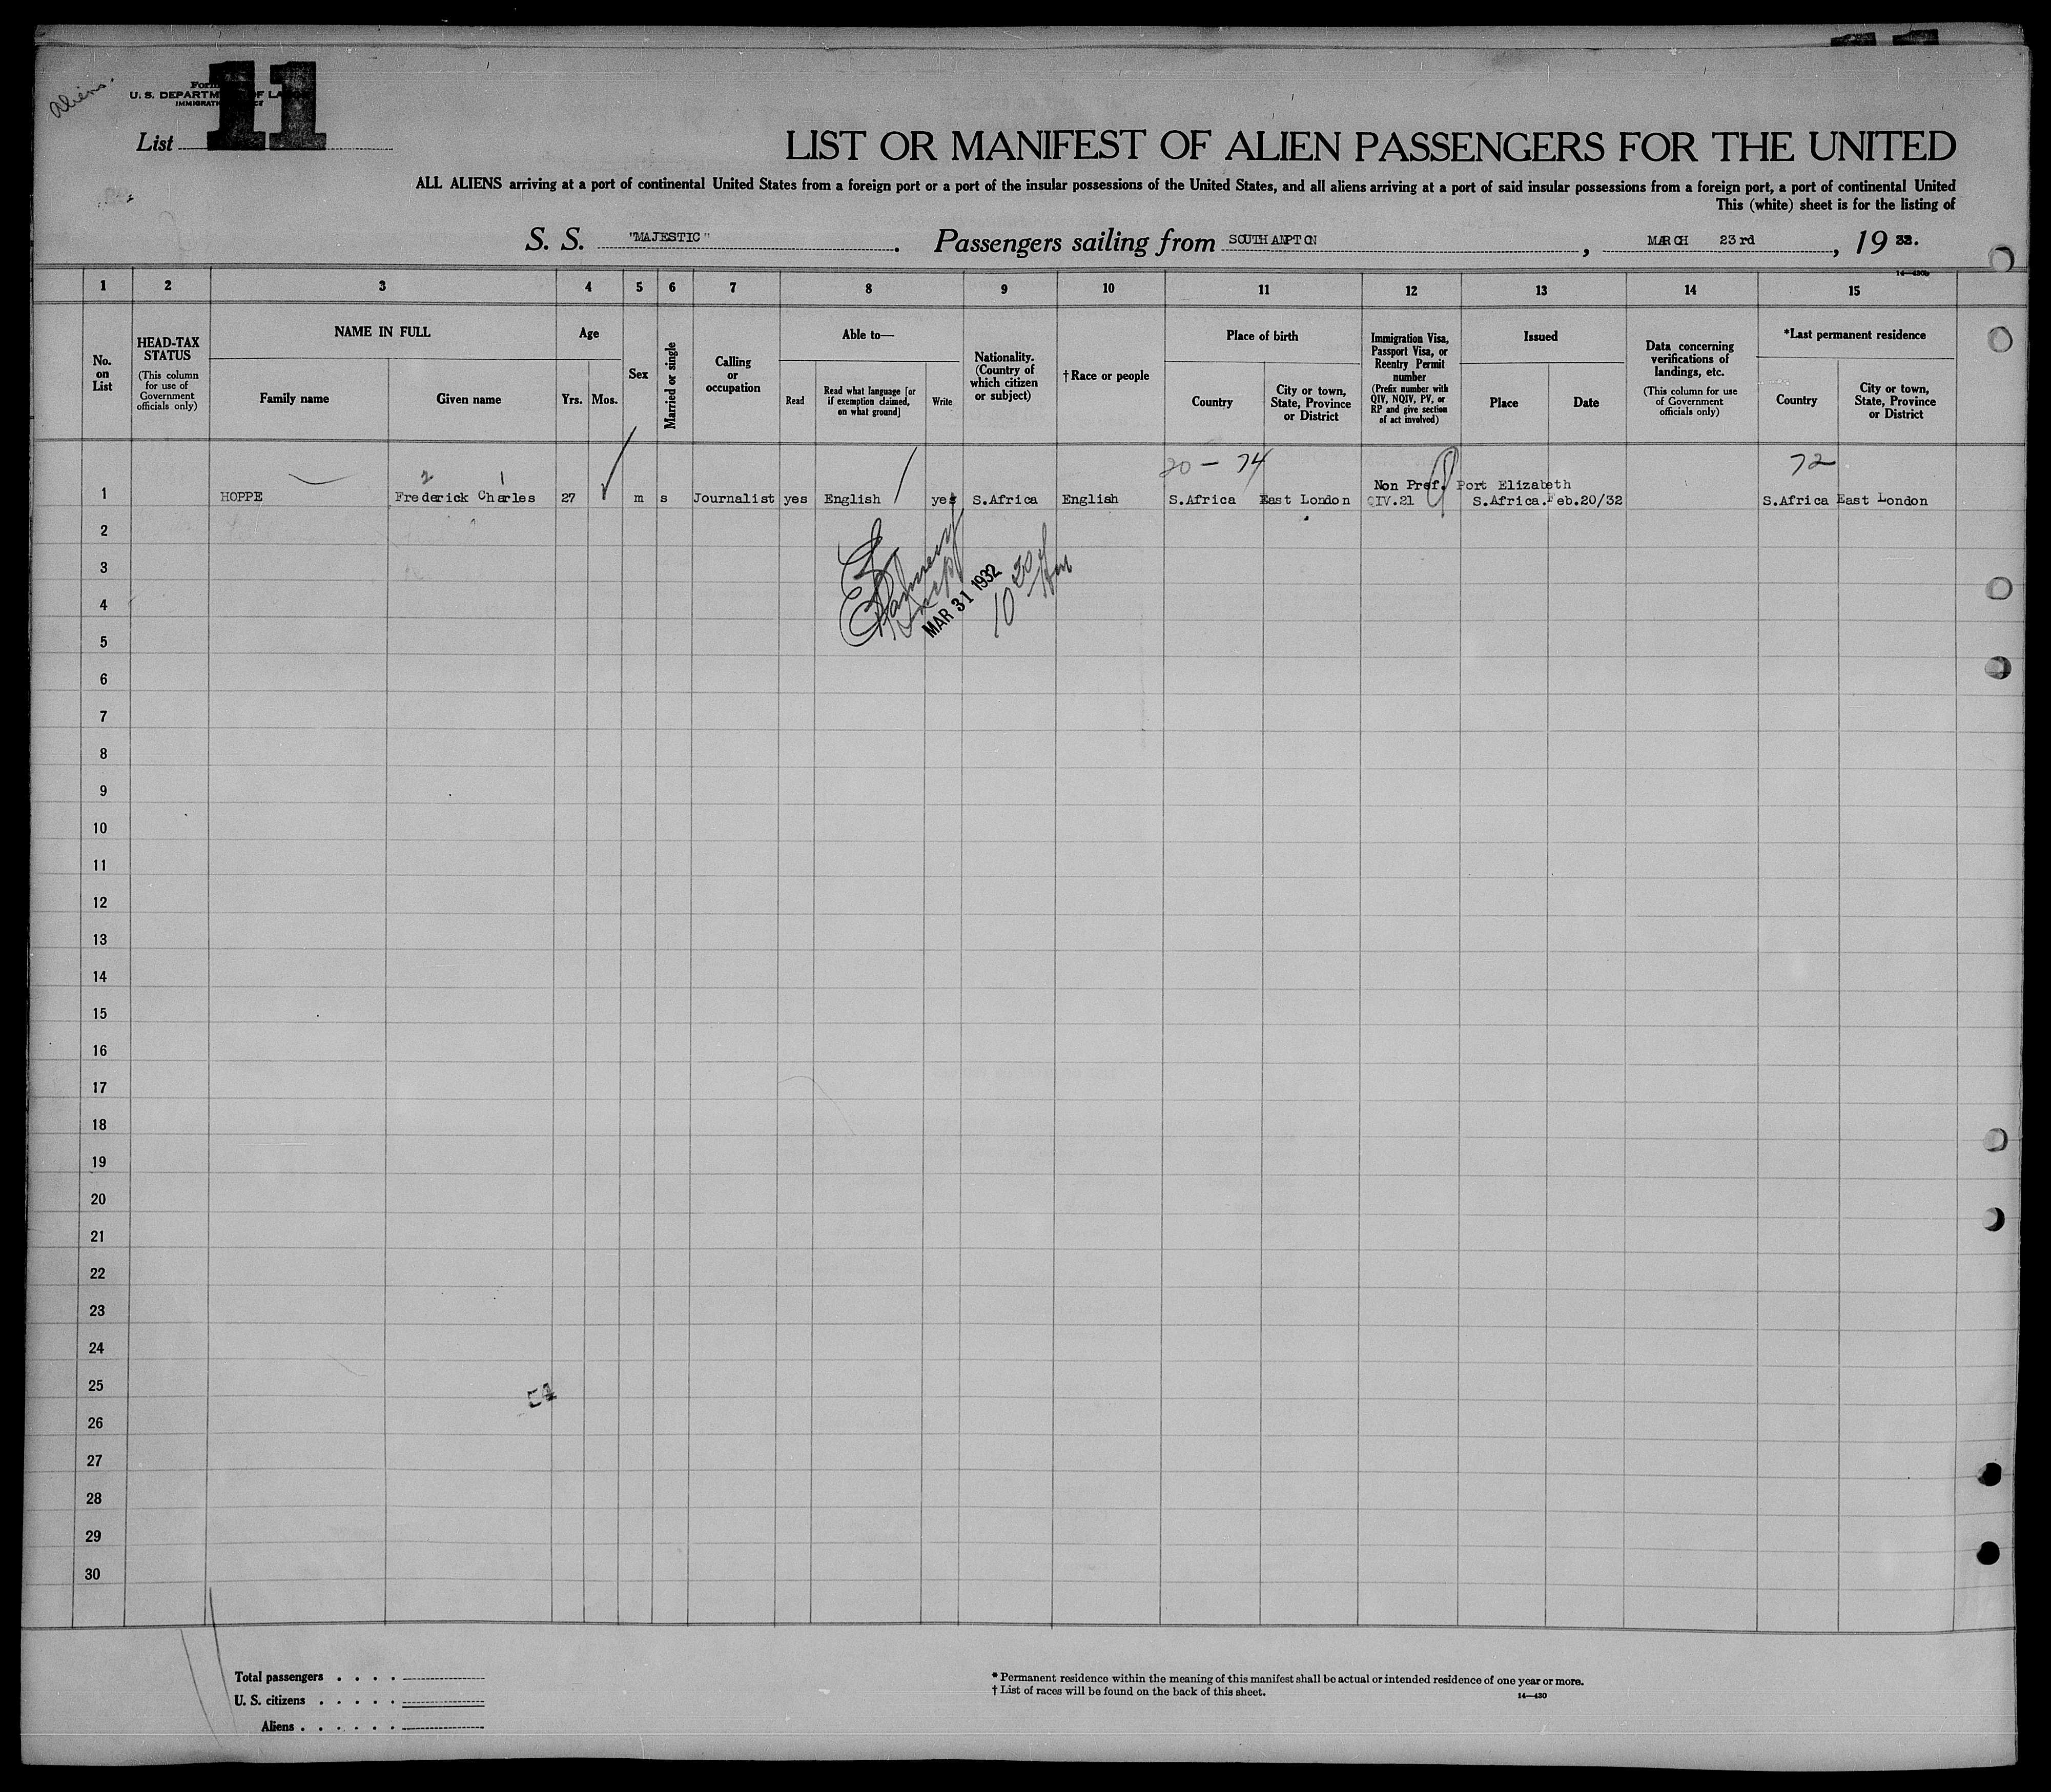 Aliens
Form
U. S. DEPARTM OF LA
IMMIGRAT CE
List 11
LIST OR MANIFEST OF ALIEN PASSENGERS FOR THE UNITED
ALL ALIENS arriving at a port of continental United States from a foreign port or a port of the insular possessions of the United States, and all aliens arriving at a port of said insular possessions from a foreign port, a port of continental United
This (white) sheet is for the listing of
S. S. "MAJESTIC". Passengers sailing from SOUTHAMPTON, MARCH 23rd, 19
1 2 3 4 5 6 7 8 9 10 11 12 13 14 15
No. on List
HEAD-TAX STATUS
(This column for use of Government officials only)
NAME IN FULL
Family name
Given name
Age
Yrs.
Mos.
Sex
Married or single
Calling or occupation
Able to—
Read
Read what language [or if exemption claimed, on what ground]
Write
Nationality. (Country of which citizen or subject)
†Race or people
Place of birth
Country
City or town, State, Province or District
Immigration Visa, Passport Visa, or Reentry Permit number
(Prefix number with QIV, NQIV, PV, or RP and give section of act involved)
Issued
Place
Date
Data concerning verifications of landings, etc.
(This column for use of Government officials only)
*Last permanent residence
Country
City or town, State, Province or District
2 1 20 - 74 72
Non Pref. Port Elizabeth
1 HOPPE Frederick Charles 27 m s Journalist yes English yes S.Africa English S.Africa East London QIV.21 S.Africa. Feb.20/32 S.Africa East London
2
3
MAR 31 1932
10 30
4
5
6
7
8
9
10
11
12
13
14
15
16
17
18
19
20
21
22
23
24
25
54
26
27
28
29
30
Total passengers . . . .
U. S. citizens . . . . .
Aliens . . . . . .
* Permanent residence within the meaning of this manifest shall be actual or intended residence of one year or more.
† List of races will be found on the back of this sheet.
14—430